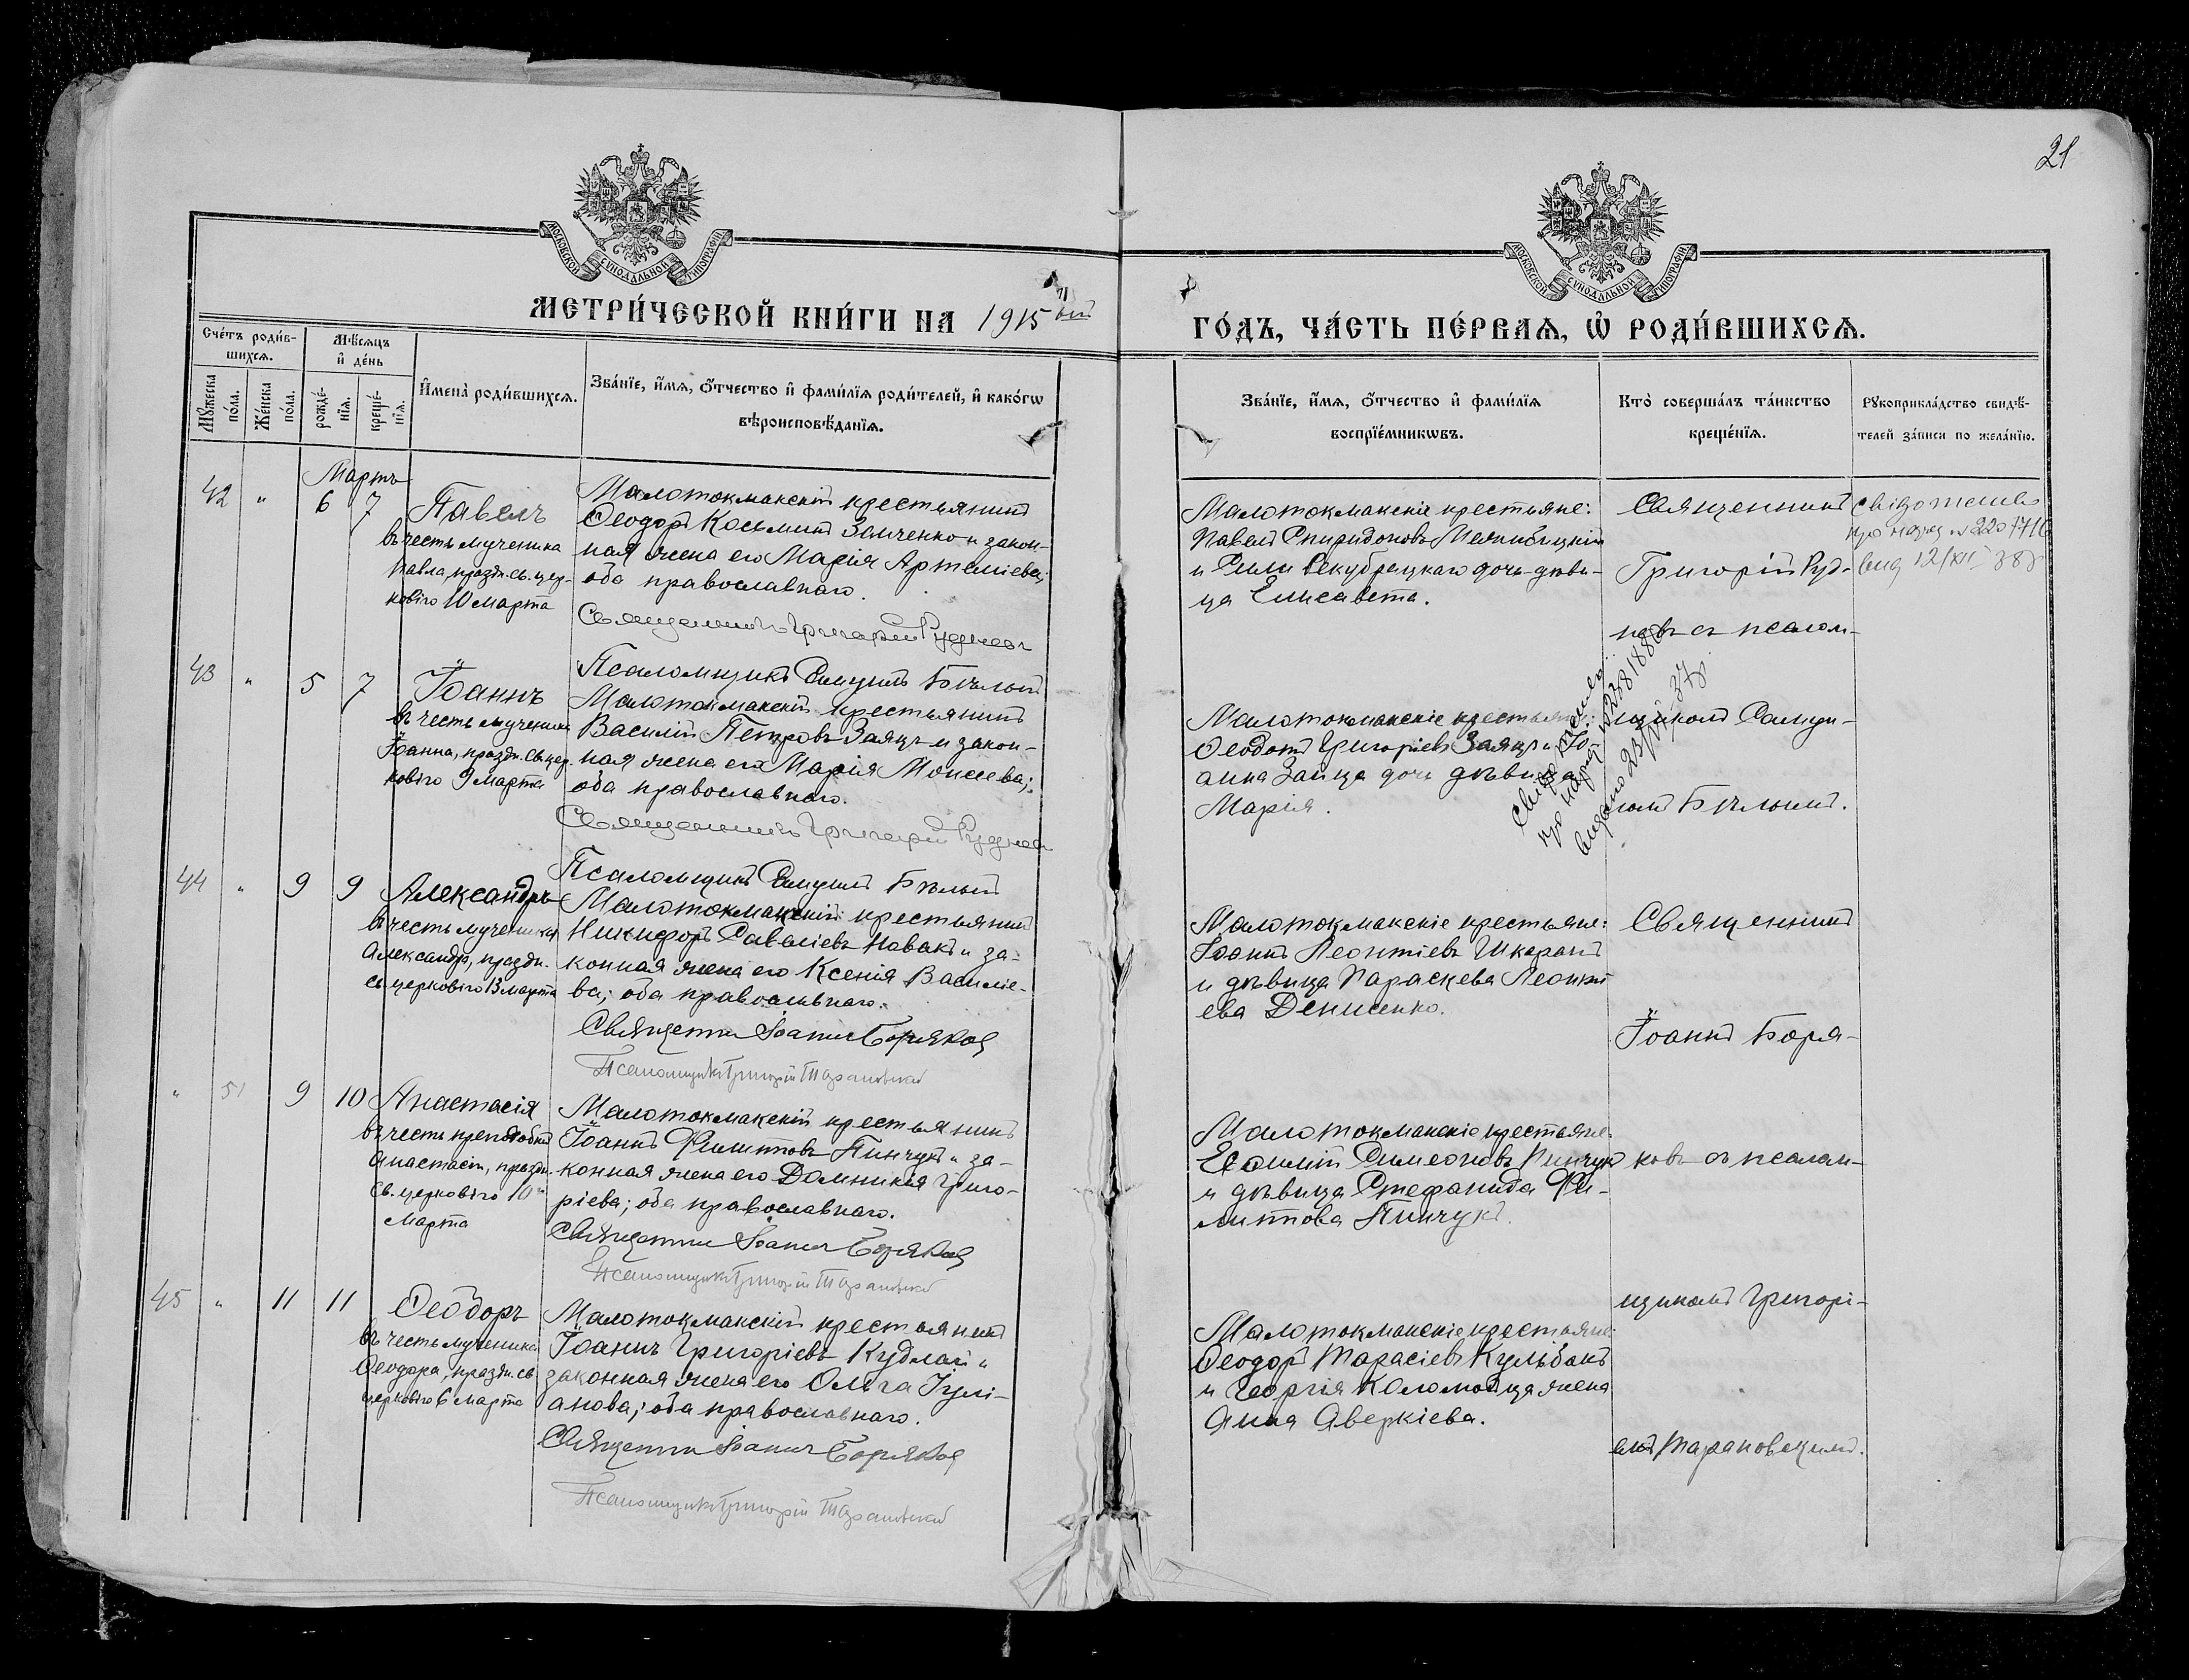 21
МОСКОВСКОЙ СѴНОДАЛЬНОЙ ТИПОГРАФІИ
МОСКОВСКОЙ СѴНОДАЛЬНОЙ ТИПОГРАФІИ
МЕТРИ́ЧЕСКОЙ КНИ́ГИ НА 1915ый
ГО́ДЪ, ЧА́СТЬ ПЕ́РВАѦ, Ѡ҆ РОДИ́ВШИХСѦ.
Сче́тъ роди́в-
шихсѧ.
Мѣ́сѧцъ
и҆ де́нь
Мꙋ́жеска
по́ла.
Же́нска
по́ла.
рожде́-
нїѧ.
креще́-
нїѧ.
И҆мена̀ роди́вшихсѧ.
Зва́нїе, и҆́мѧ, ѻ҆́тчество и҆ фами́лїѧ роди́телей, и҆ како́гѡ
вѣроисповѣ́данїѧ.
Зва́нїе, и҆́мѧ, ѻ҆́тчество и҆ фами́лїѧ
воспрїе́мникѡвъ.
Кто̀ соверша́лъ та́инство
креще́нїѧ.
Рꙋкоприкла́дство свидѣ́-
телей за́писи по жела́нїю.
Мартъ
42 " 6 7
Павелъ
въ честь мученика
Павла, праздн. св. цер-
ковію 10 марта
Малотокмакскій крестьянинъ
Ѳеодоръ Косьминъ Земченко и закон-
ная жена его Марія Артеміева;
оба православнаго.
Священникъ Григорій Рудневъ
Псаломщикъ Самуилъ Бѣлый
Малотокмакскіе крестьяне:
Павелъ Спиридоновъ
и дочь дѣви-
ца Елисавета.
Священникъ
Григорій Руд-
невъ съ псалом-
свідотство
про народ. № 2207716
вид 12/XII 38 р
43 " 5 7
Іоаннъ
въ честь мученика
Іоанна, праздн. св. цер-
ковію 9 марта
Малотокмакскій крестьянинъ
Василій Петровъ Заяцъ и закон-
ная жена его Марія Моисеева;
оба православнаго.
Священникъ Григорій Рудневъ
Псаломщикъ Самуилъ Бѣлый
Малотокмакскіе крестьяне:
Ѳеодотъ Григоріевъ Заяцъ и Іо-
анна Зайца дочь дѣвица
Марія.
щикомъ Самуи-
ломъ Бѣлымъ.
44 " 9 9
Александръ
въ честь мученика
Александр, праздн.
св. церковію 13 марта
Малотокмакскій крестьянинъ
Никифоръ Савеліевъ Новакъ и за-
конная жена его Ксенія Василіе-
ва; оба православнаго.
Священник Іоаннъ Боряковъ
Псаломщикъ Григорій Тарановскій
Малотокмакскіе крестьяне:
Іоаннъ Леонтіевъ Шкарапъ
и дѣвица Параскева Леонті-
ева Денисенко.
Священникъ
Іоаннъ Боря-
" 51 9 10
Анастасія
въ честь преподобной
Анастасіи, праздн.
св. церковію 10го
Марта
Малотокмакскій крестьянинъ
Іоаннъ Филипповъ Пинчукъ и за-
конная жена его Домникія Григо-
ріева; оба православнаго.
Священник Іоаннъ Боряковъ
Псаломщикъ Григорій Тарановскій
Малотокмакскіе крестьяне:
Симеоновъ Пинчукъ
и дѣвица Стефанида Фи-
липпова Пинчукъ.
ковъ съ псалом-
45 " 11 11
Ѳеодоръ
въ честь мученика
Ѳеодора, праздн. св.
церковію 6 марта
Малотокмакскій крестьянинъ
Іоаннъ Григоріевъ Кудлай и
законная жена его Ольга Іулі-
анова; оба православнаго.
Священник Іоаннъ Боряковъ
Псаломщикъ Григорій Тарановскій
Малотокмакскіе крестьяне:
Ѳеодоръ Тарасіевъ Кульбакъ
и Георгія Коломойца жена
Анна Аверкіева.
щикомъ Григорі-
емъ Тарановскимъ.